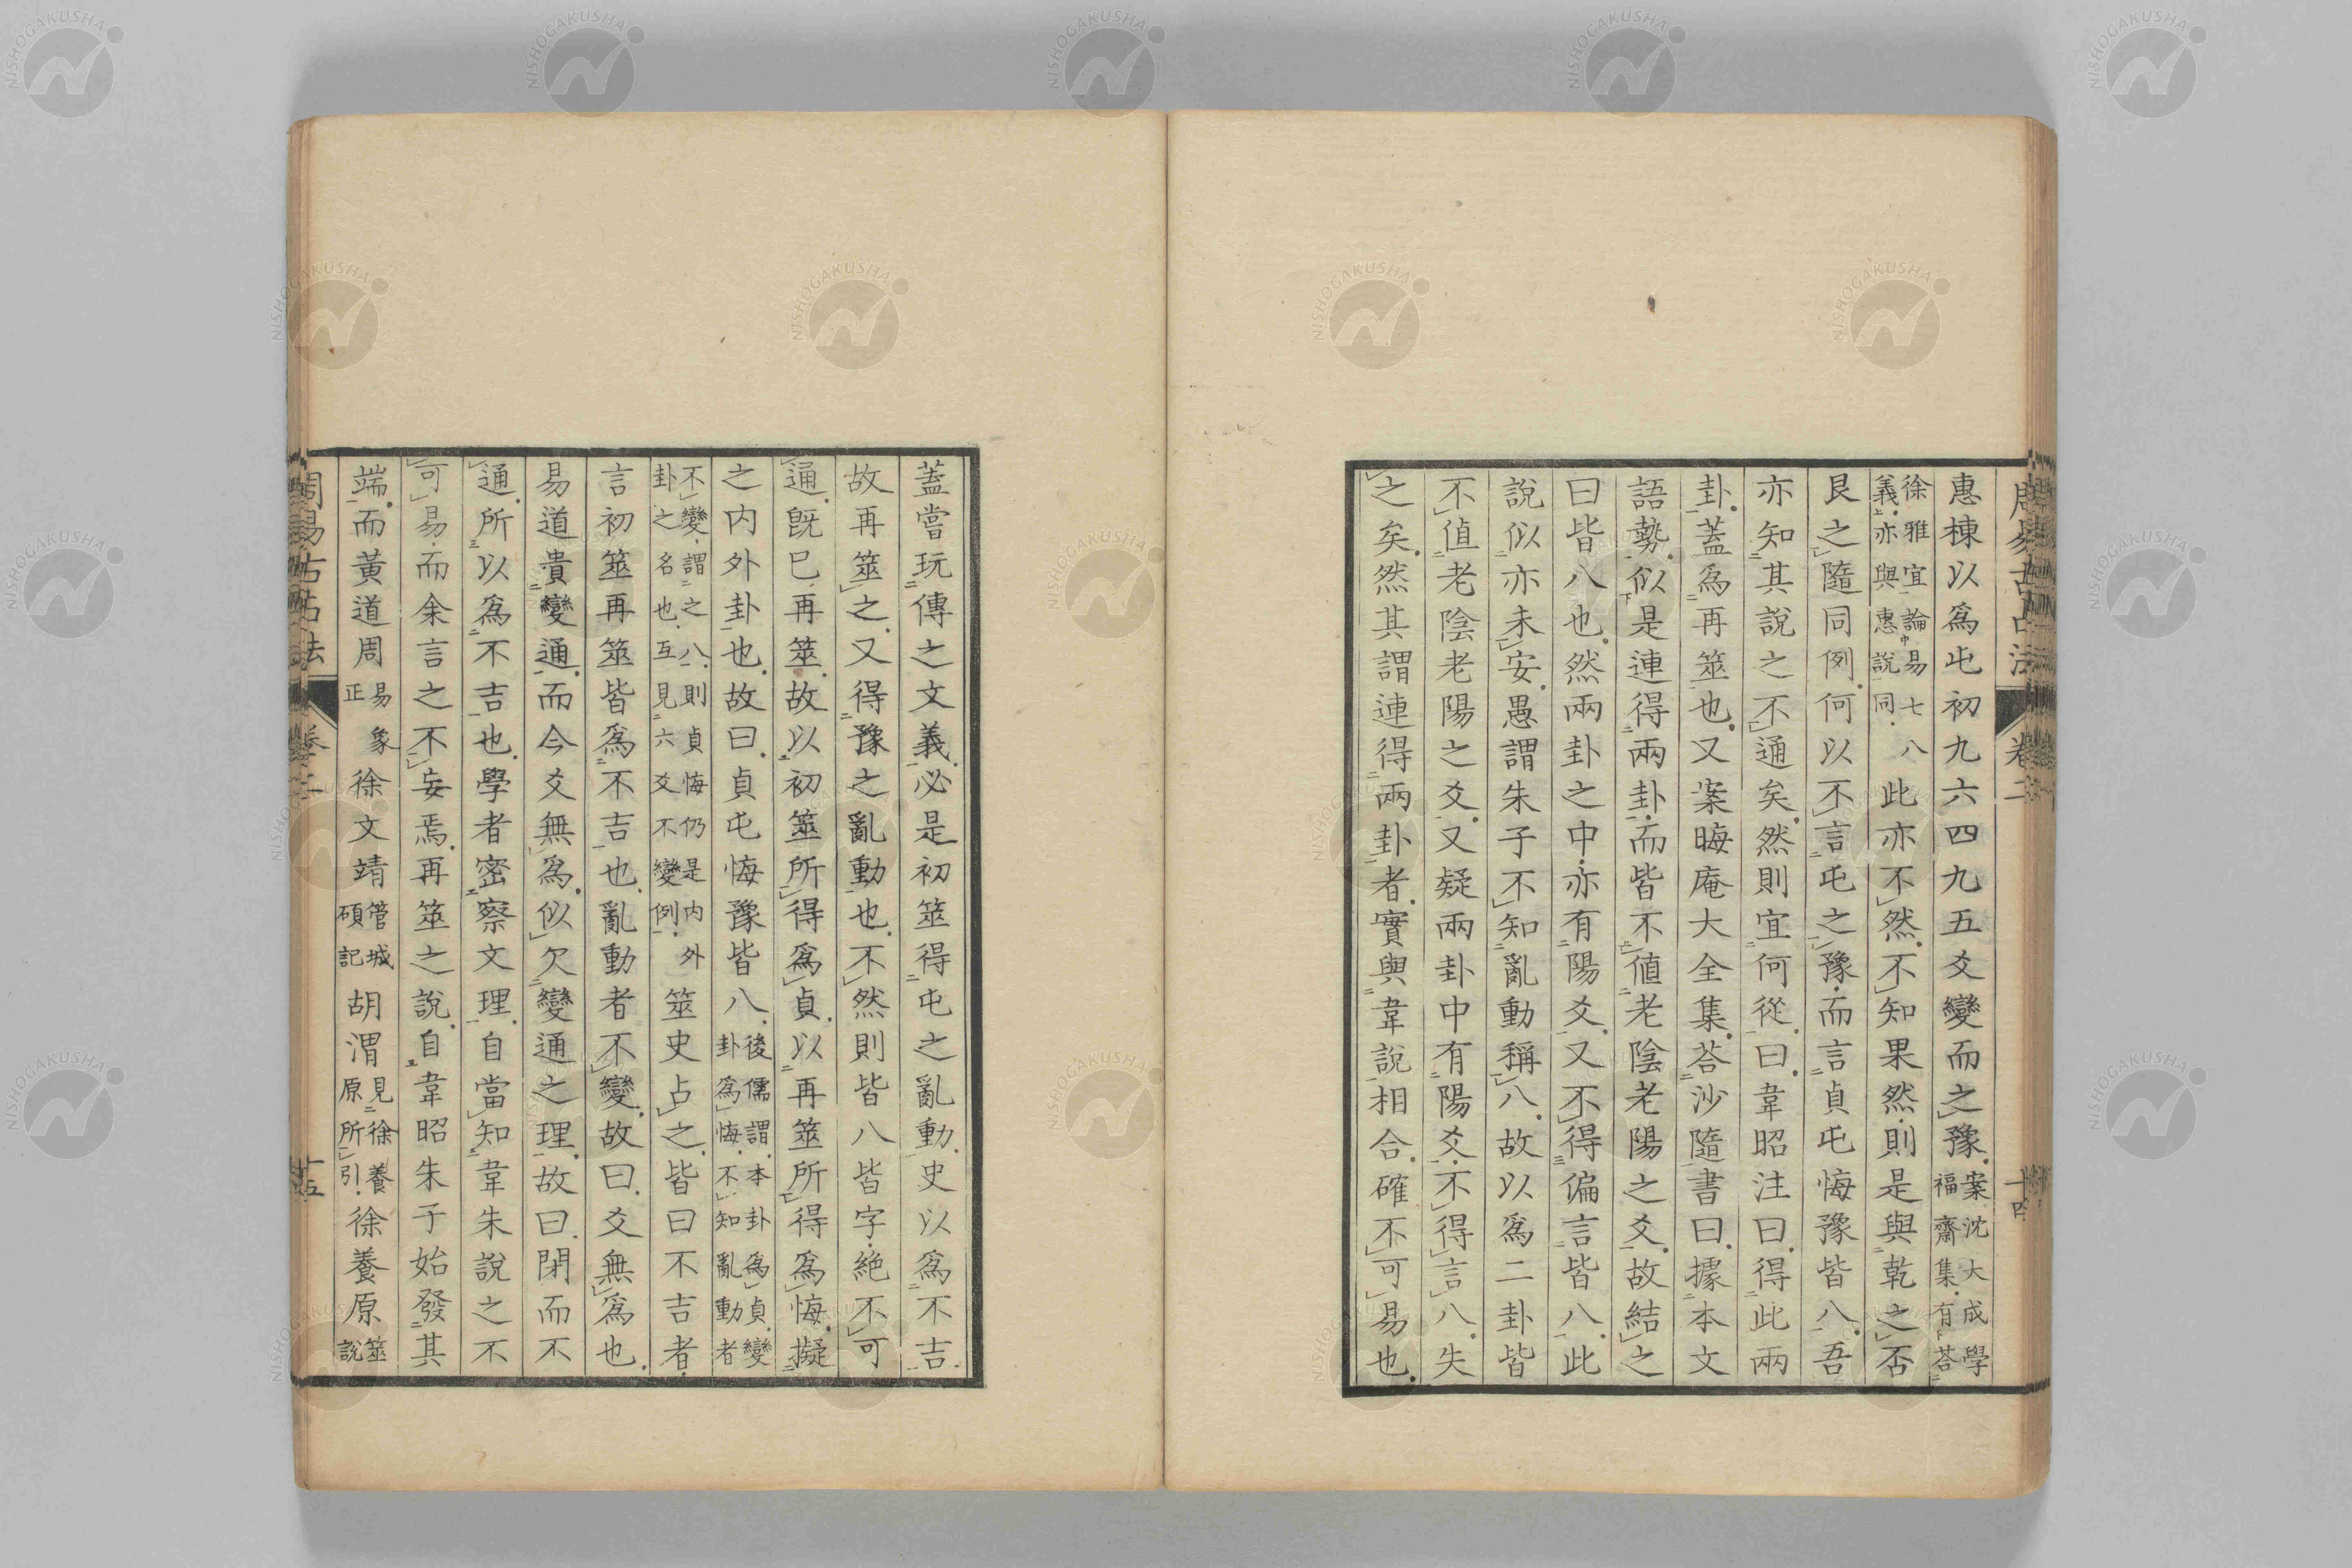 惠棟以爲屯初九六四九五爻變而之豫案沈大成學福齋集有荅
徐雅宜論易七八義亦與惠說同此亦不然不知果然則是與乾之否
艮之隨同例何以不言屯之豫而言貞屯悔豫皆八吾
亦知其說之不通矣然則宜何從曰韋昭注曰得此兩
卦蓋爲再筮也又案晦庵大全集荅沙隨書曰據本文
語勢似是連得兩卦而皆不値老陰老陽之爻故結之
曰皆八也然兩卦之中亦有陽爻又不得偏言皆八此
說似亦未安愚謂朱子不知亂動稱八故以爲二卦皆
不値老陰老陽之爻又疑兩卦中有陽爻不得言八失
之矣然其謂連得兩卦者實與韋說相合確不可易也
蓋嘗玩傳之文義必是初筮得屯之亂動史以爲不吉
故再筮之又得豫之亂動也不然則皆八皆字絶不可
通旣已再筮故以初筮所得爲貞以再筮所得爲悔擬
之内外卦也故曰貞屯悔豫皆八後儒謂本卦爲貞變卦爲悔不知亂動者
不變謂之八則貞悔仍是内外卦之名也互見六爻不變例筮史占之皆曰不吉者
言初筮再筮皆爲不吉也亂動者不變故曰爻無爲也
易道貴變通而今爻無爲似欠變通之理故曰閉而不
通所以爲不吉也學者密察文理自當知韋朱說之不
可易而余言之不妄焉再筮之說自韋昭朱子始發其
端而黃道周易象正徐文靖管城碩記胡渭見徐養原所引徐養原筮說
周易古占法 卷二 十四
周易古占法 卷二 十五
NISHOGAKUSHA